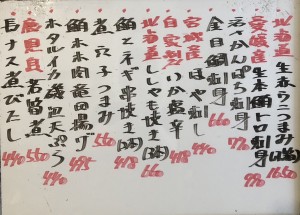 北海道 生春ウニつまみ(2貫) 1650
愛媛産 生本鮪トロ刺身 990
活々かんぱち刺身 770
金目鯛刺身 660
宮城産 ほや刺し 440
自家製 いか塩辛 418
北海道 ししゃも焼き(3本) 660
鮪とネギ串焼き(2本) 418
煮穴子つまみ
鮪ホホ肉竜田揚げ 495
ホタルイカ磯辺天ぷら 440
鹿児島 若筍煮 550
長ナス煮びたし 440